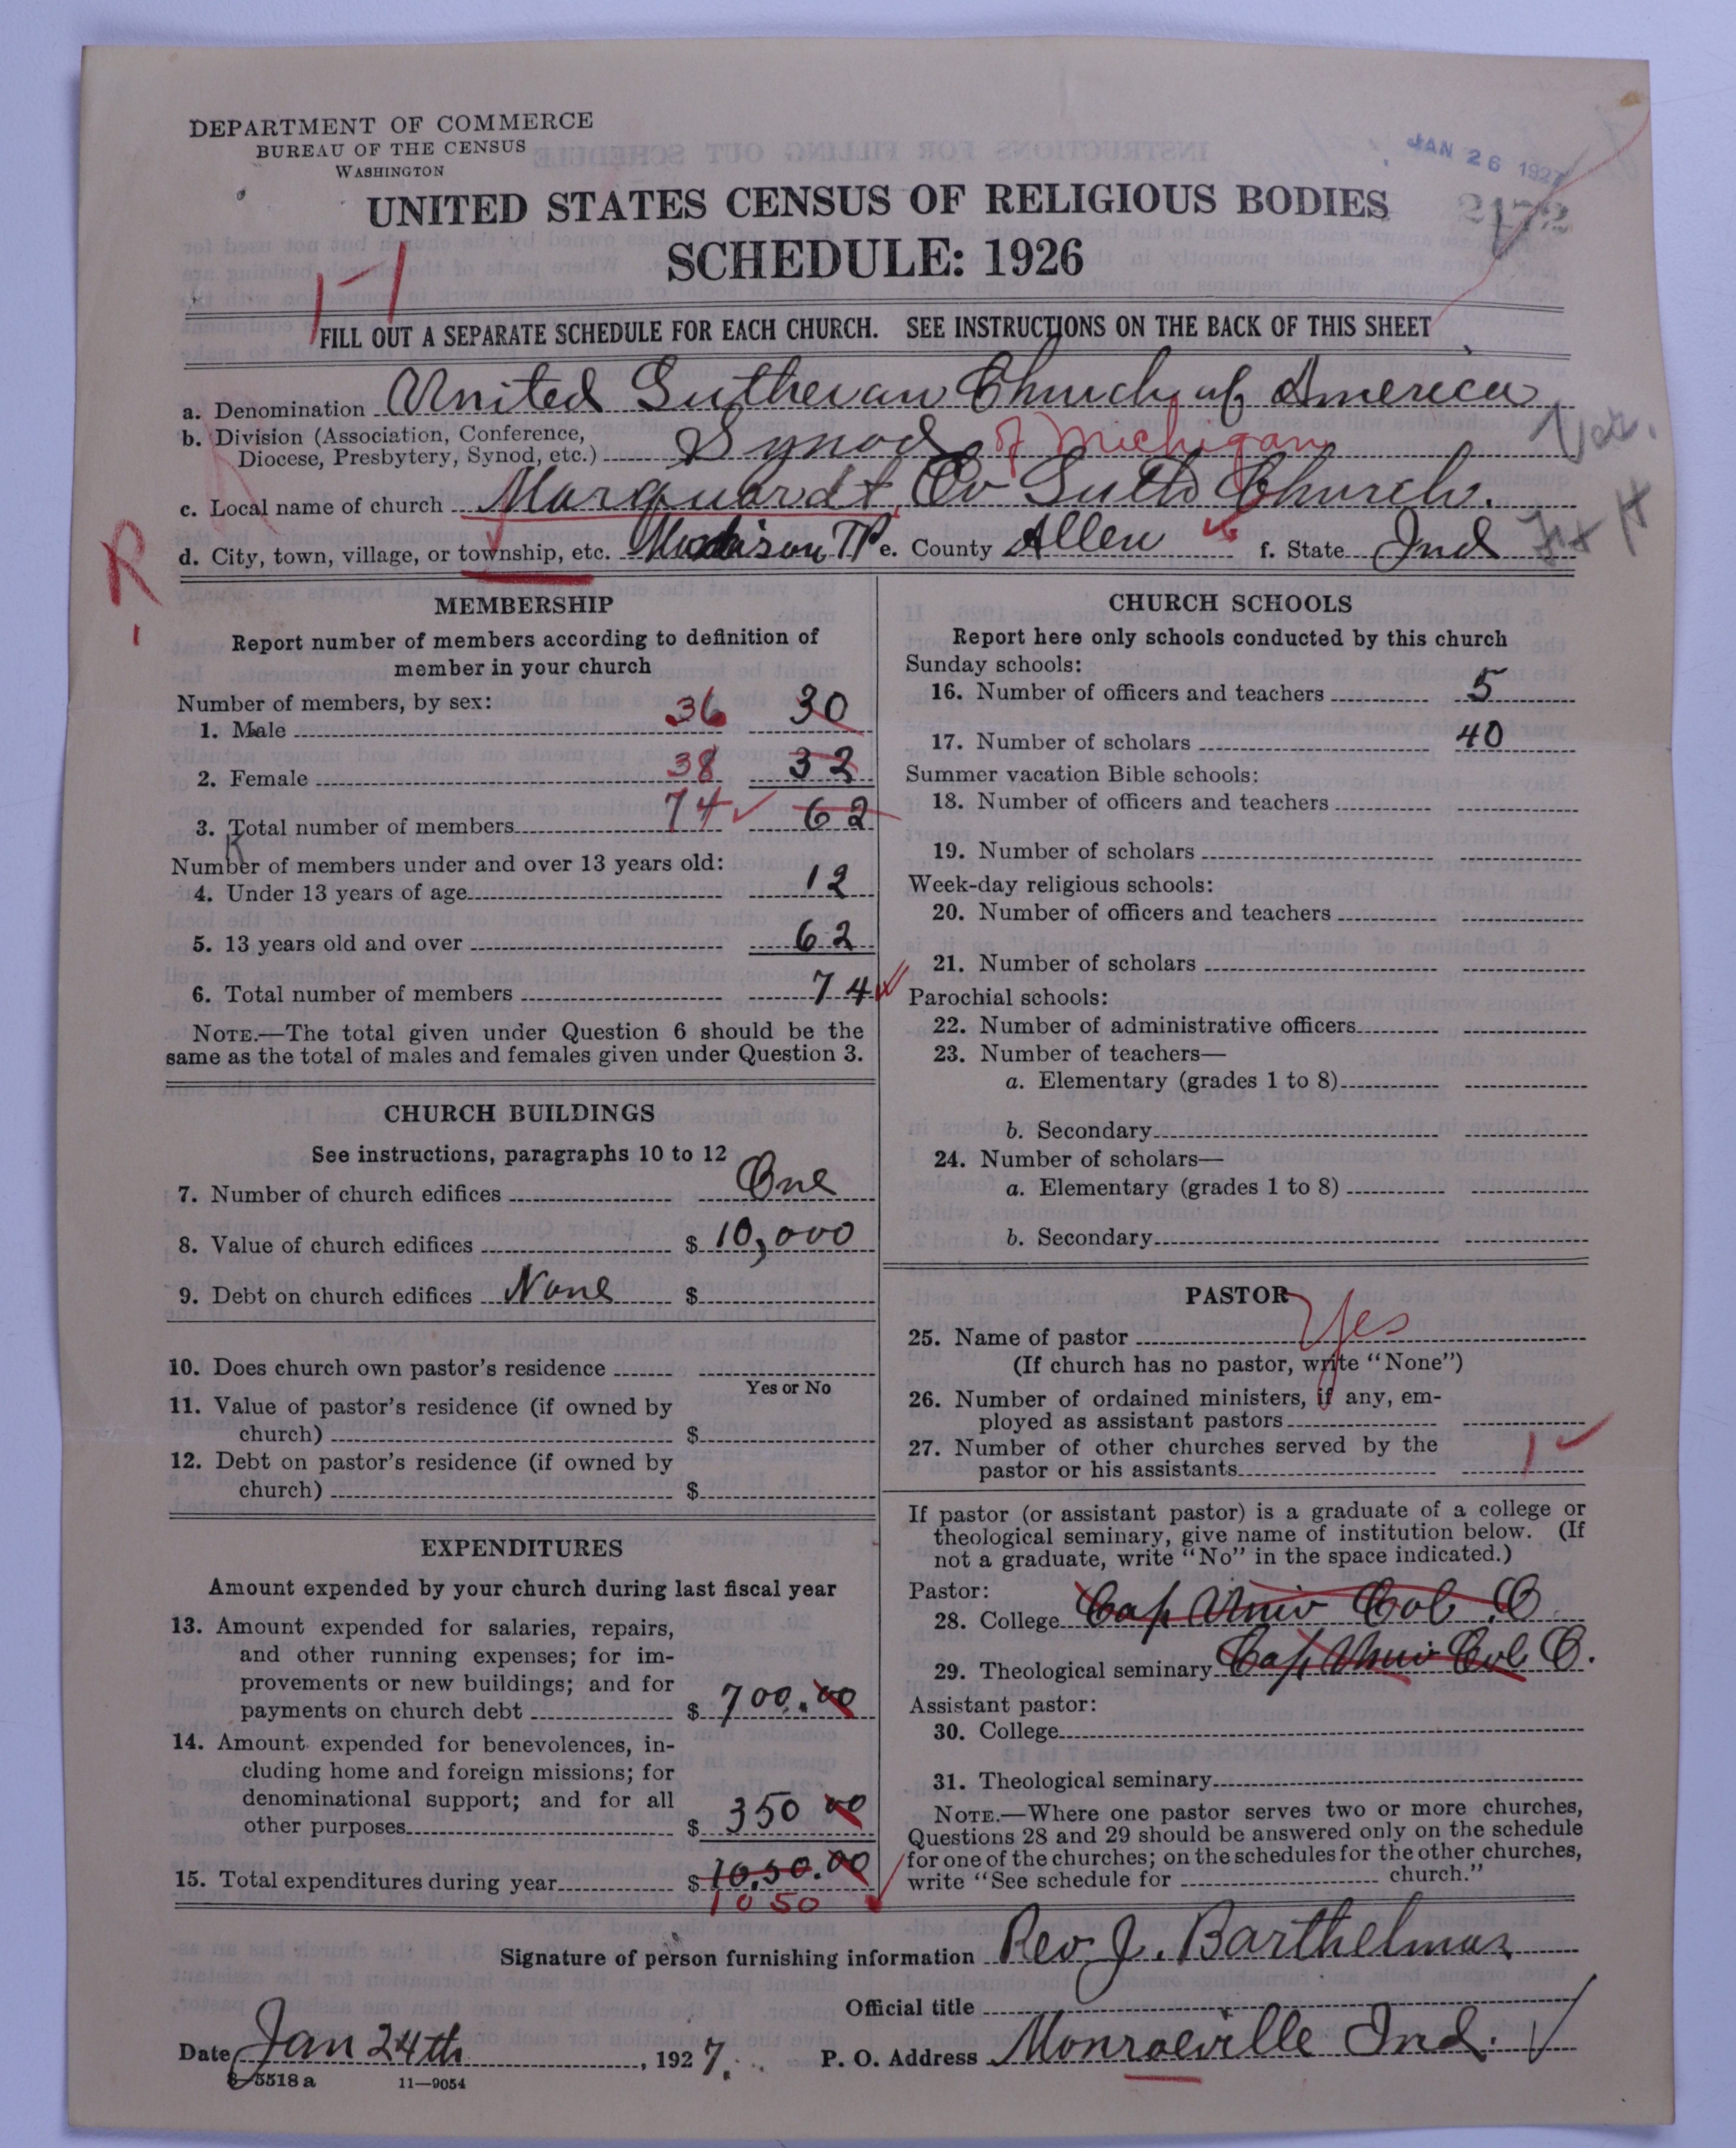 DEPARTMENT OF COMMERCE
BUREAU OF THE CENSUS
WASHINGTON
JAN 26 1927
2172
UNITED STATES CENSUS OF RELIGIOUS BODIES
SCHEDULE: 1926
H
FILL OUT A SEPARATE SCHEDULE FOR EACH CHURCH. SEE INSTRUCTIONS ON THE BACK OF THIS SHEET
a. Denomination United Lutheran Church of America
b. Division (Association, Conference, Diocese, Presbytery, Synod, etc.) Synod of Michigan
c. Local name of church Marquardt Ev Luth Church.
d. City, town, village, or township, etc. Madison TP e. County Allen f. State Ind
R
MEMBERSHIP
Report number of members according to definition of
member in your church
Number of members, by sex:
1. Male 36 30
2. Female 38 32
3. Total number of members 74 62
Number of members under and over 13 years old:
4. Under 13 years of age 12
5. 13 years old and over 62
6. Total number of members 74
NOTE.—The total given under Question 6 should be the
same as the total of males and females given under Question 3.
CHURCH BUILDINGS
See instructions, paragraphs 10 to 12
7. Number of church edifices One
8. Value of church edifices $ 10,000
9. Debt on church edifices None $
10. Does church own pastor's residence
Yes or No
11. Value of pastor's residence (if owned by
church) $
12. Debt on pastor's residence (if owned by
church) $
EXPENDITURES
Amount expended by your church during last fiscal year
13. Amount expended for salaries, repairs,
and other running expenses; for im-
provements or new buildings; and for
payments on church debt $ 700.00
14. Amount expended for benevolences, in-
cluding home and foreign missions; for
denominational support; and for all
other purposes $ 350 00
15. Total expenditures during year $ 10,50.00
1050
CHURCH SCHOOLS
Report here only schools conducted by this church
Sunday schools:
16. Number of officers and teachers 5
17. Number of scholars 40
Summer vacation Bible schools:
18. Number of officers and teachers
19. Number of scholars
Week-day religious schools:
20. Number of officers and teachers
21. Number of scholars
Parochial schools:
22. Number of administrative officers
23. Number of teachers—
a. Elementary (grades 1 to 8)
b. Secondary
24. Number of scholars—
a. Elementary (grades 1 to 8)
b. Secondary
PASTOR
25. Name of pastor Yes
(If church has no pastor, write "None")
26. Number of ordained ministers, if any, em-
ployed as assistant pastors
27. Number of other churches served by the
pastor or his assistants 1
If pastor (or assistant pastor) is a graduate of a college or
theological seminary, give name of institution below. (If
not a graduate, write "No" in the space indicated.)
Pastor:
28. College Cap Univ Col O
29. Theological seminary Cap Univ Col O.
Assistant pastor:
30. College
31. Theological seminary
NOTE.—Where one pastor serves two or more churches,
Questions 28 and 29 should be answered only on the schedule
for one of the churches; on the schedules for the other churches,
write "See schedule for church."
Signature of person furnishing information Rev J. Barthelmas
Official title
Date Jan 24th, 1927. P. O. Address Monroeville Ind.
8—5518a 11—9054